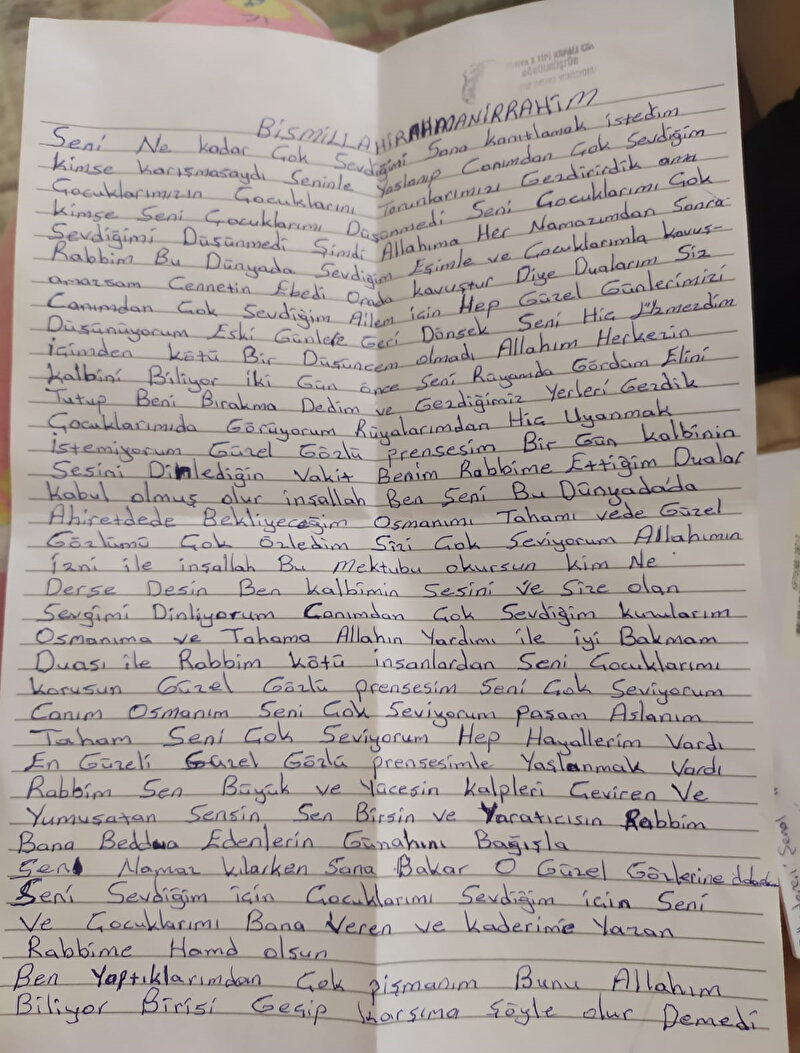 BİSMİLLAHİRAHMANİRRAHİM
Seni Ne kadar Çok Sevdiğimi Sana kanıtlamak istedim
kimse karışmasaydı Seninle Yaşlanıp Canımdan Çok Sevdiğim
Çocuklarımızın Çocuklarını Torunlarımızı Gezdirirdik ama
kimse Seni Çocuklarımı Düşünmedi Seni Çocuklarımı Çok
Sevdiğimi Düşünmedi Şimdi Allahıma Her Namazımdan Sonra
Rabbim Bu Dünyada Sevdiğim Eşimle ve Çocuklarımla kavuş-
amazsam Cennetin Ebedi Orada kavuştur Diye Dualarım Siz
Canımdan Çok Sevdiğim Ailem için Hep Güzel Günlerimizi
Düşünüyorum Eski Günlere Geri Dönsek Seni Hiç Üzmezdim
içimden kötü Bir Düşüncem olmadı Allahım Herkezin
kalbini Biliyor iki Gün önce Seni Rüyamda Gördüm Elini
Tutup Beni Bırakma Dedim ve Gezdiğimiz Yerleri Gezdik
Çocuklarımıda Görüyorum Rüyalarımdan Hiç Uyanmak
istemiyorum Güzel Gözlü prensesim Bir Gün kalbinin
Sesini Dinlediğin Vakit Benim Rabbime Ettiğim Dualar
kabul olmuş olur inşallah Ben Seni Bu Dünyada'da
Ahiretdede Bekliyeceğim Osmanımı Tahamı vede Güzel
Gözlümü Çok özledim Sizi Çok Seviyorum Allahımın
izni ile inşallah Bu Mektubu okursun kim Ne
Derse Desin Ben kalbimin Sesini ve Size olan
Sevgimi Dinliyorum Canımdan Çok Sevdiğim kuzularım
Osmanıma ve Tahama Allahın Yardımı ile iyi Bakmam
Duası ile Rabbim kötü insanlardan Seni Çocuklarımı
korusun Güzel Gözlü prensesim Seni Çok Seviyorum
Canım Osmanım Seni Çok Seviyorum paşam Aslanım
Taham Seni Çok Seviyorum Hep Hayallerim Vardı
En Güzeli Güzel Gözlü prensesimle Yaşlanmak Vardı
Rabbim Sen Büyük ve Yücesin kalpleri Çeviren Ve
Yumuşatan Sensin Sen Birsin ve Yaratıcısın Rabbim
Bana Beddua Edenlerin Günahını Bağışla
Seni Namaz kılarken Sana Bakar O Güzel Gözlerine
Seni Sevdiğim için Çocuklarımı Sevdiğim için Seni
Ve Çocuklarımı Bana Veren ve kaderime Yazan
Rabbime Hamd olsun
Ben Yaptıklarımdan Çok pişmanım Bunu Allahım
Biliyor Birisi Geçip karşıma şöyle olur Demedi